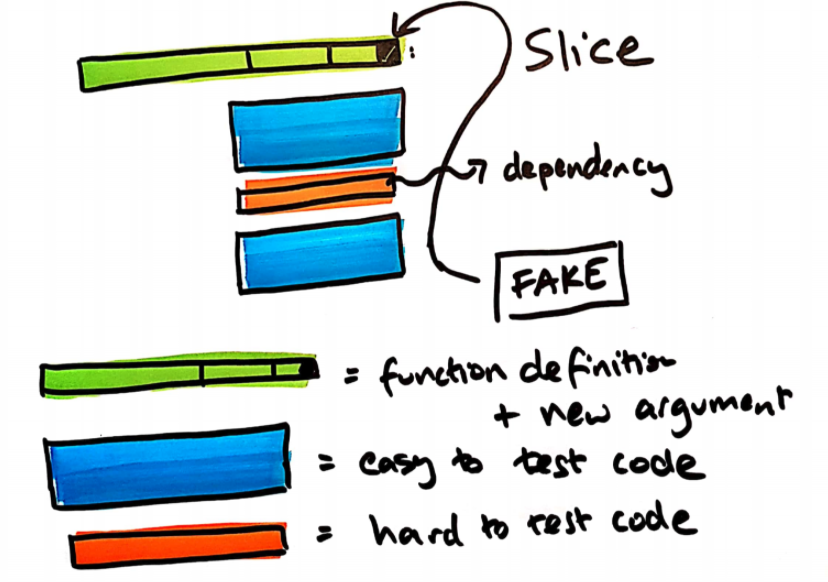 Slice
dependency
FAKE
= function definition
+ new argument
= easy to test code
= hard to test code